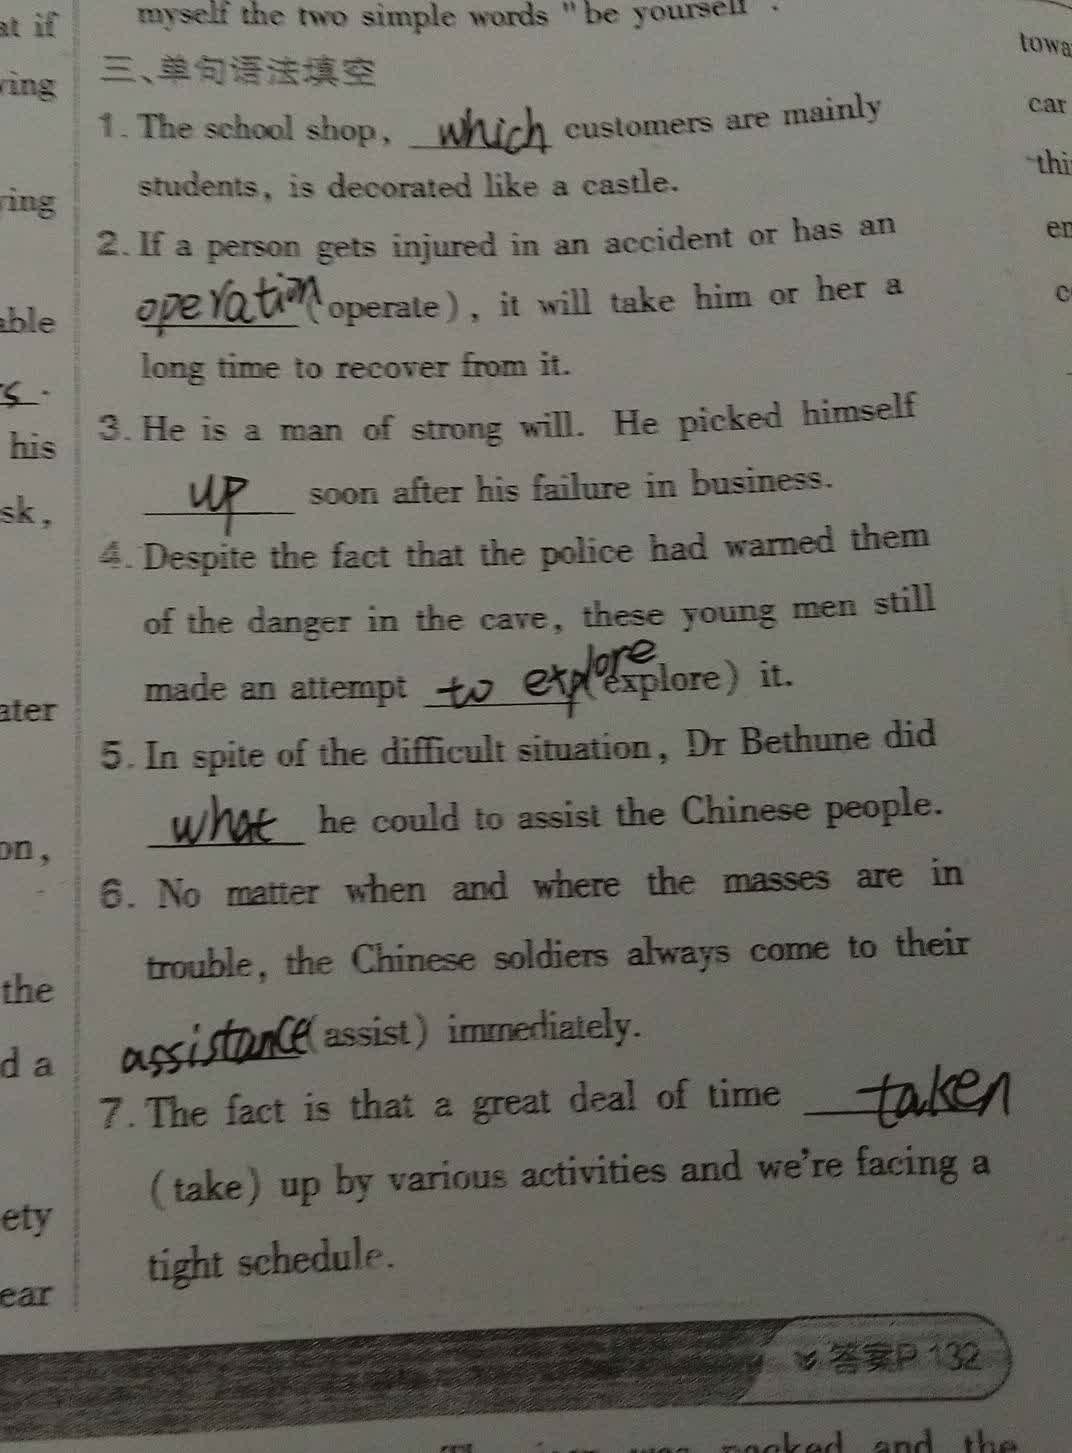 at if
ving
ring
able
s.
his
sk,
ater
on,
the
d a
ety
ear
myself the two simple words "be yourself".
三、单句语法填空
1. The school shop, which customers are mainly
students, is decorated like a castle.
2. If a person gets injured in an accident or has an
operation (operate), it will take him or her a
long time to recover from it.
3. He is a man of strong will. He picked himself
up soon after his failure in business.
4. Despite the fact that the police had warned them
of the danger in the cave, these young men still
made an attempt to explore (explore) it.
5. In spite of the difficult situation, Dr Bethune did
what he could to assist the Chinese people.
6. No matter when and where the masses are in
trouble, the Chinese soldiers always come to their
assistance (assist) immediately.
7. The fact is that a great deal of time taken
(take) up by various activities and we're facing a
tight schedule.
答案P 132
towa
car
thi
en
c
packed and the